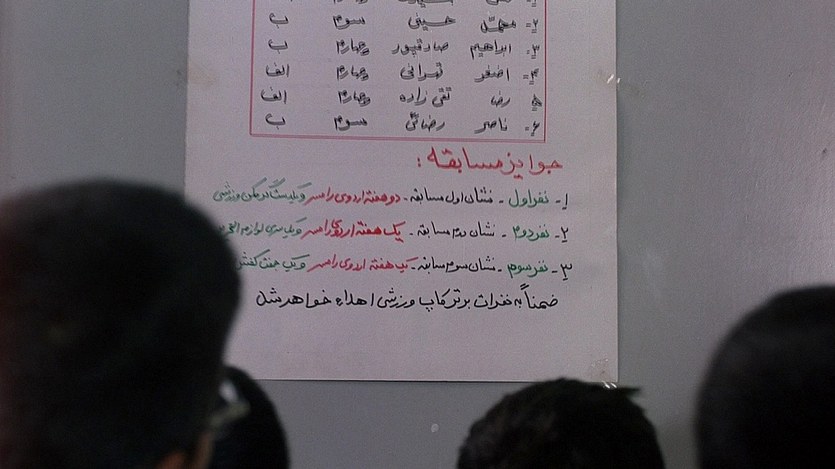 ۲- محمّد حسینی سوم ب
۳- ابراهیم صادقپور چهارم ب
۴- اصغر تهرانی چهارم الف
۵- رضا تقی زاده چهارم الف
۶- ناصر رضائی سوم ب
جوایز مسابقه :
۱- نفر اول - نشان اول مسابقه - دو هفته اردوی رامسر و یکدست گرمکن ورزشی
۲- نفر دوم - نشان دوم مسابقه - یک هفته اردوی رامسر و یک سری لوازم
۳- نفر سوم - نشان سوم مسابقه - یک هفته اردوی رامسر و یک جفت کفش
ضمناً به نفرات برتر کاپ ورزشی اهداء خواهد شد